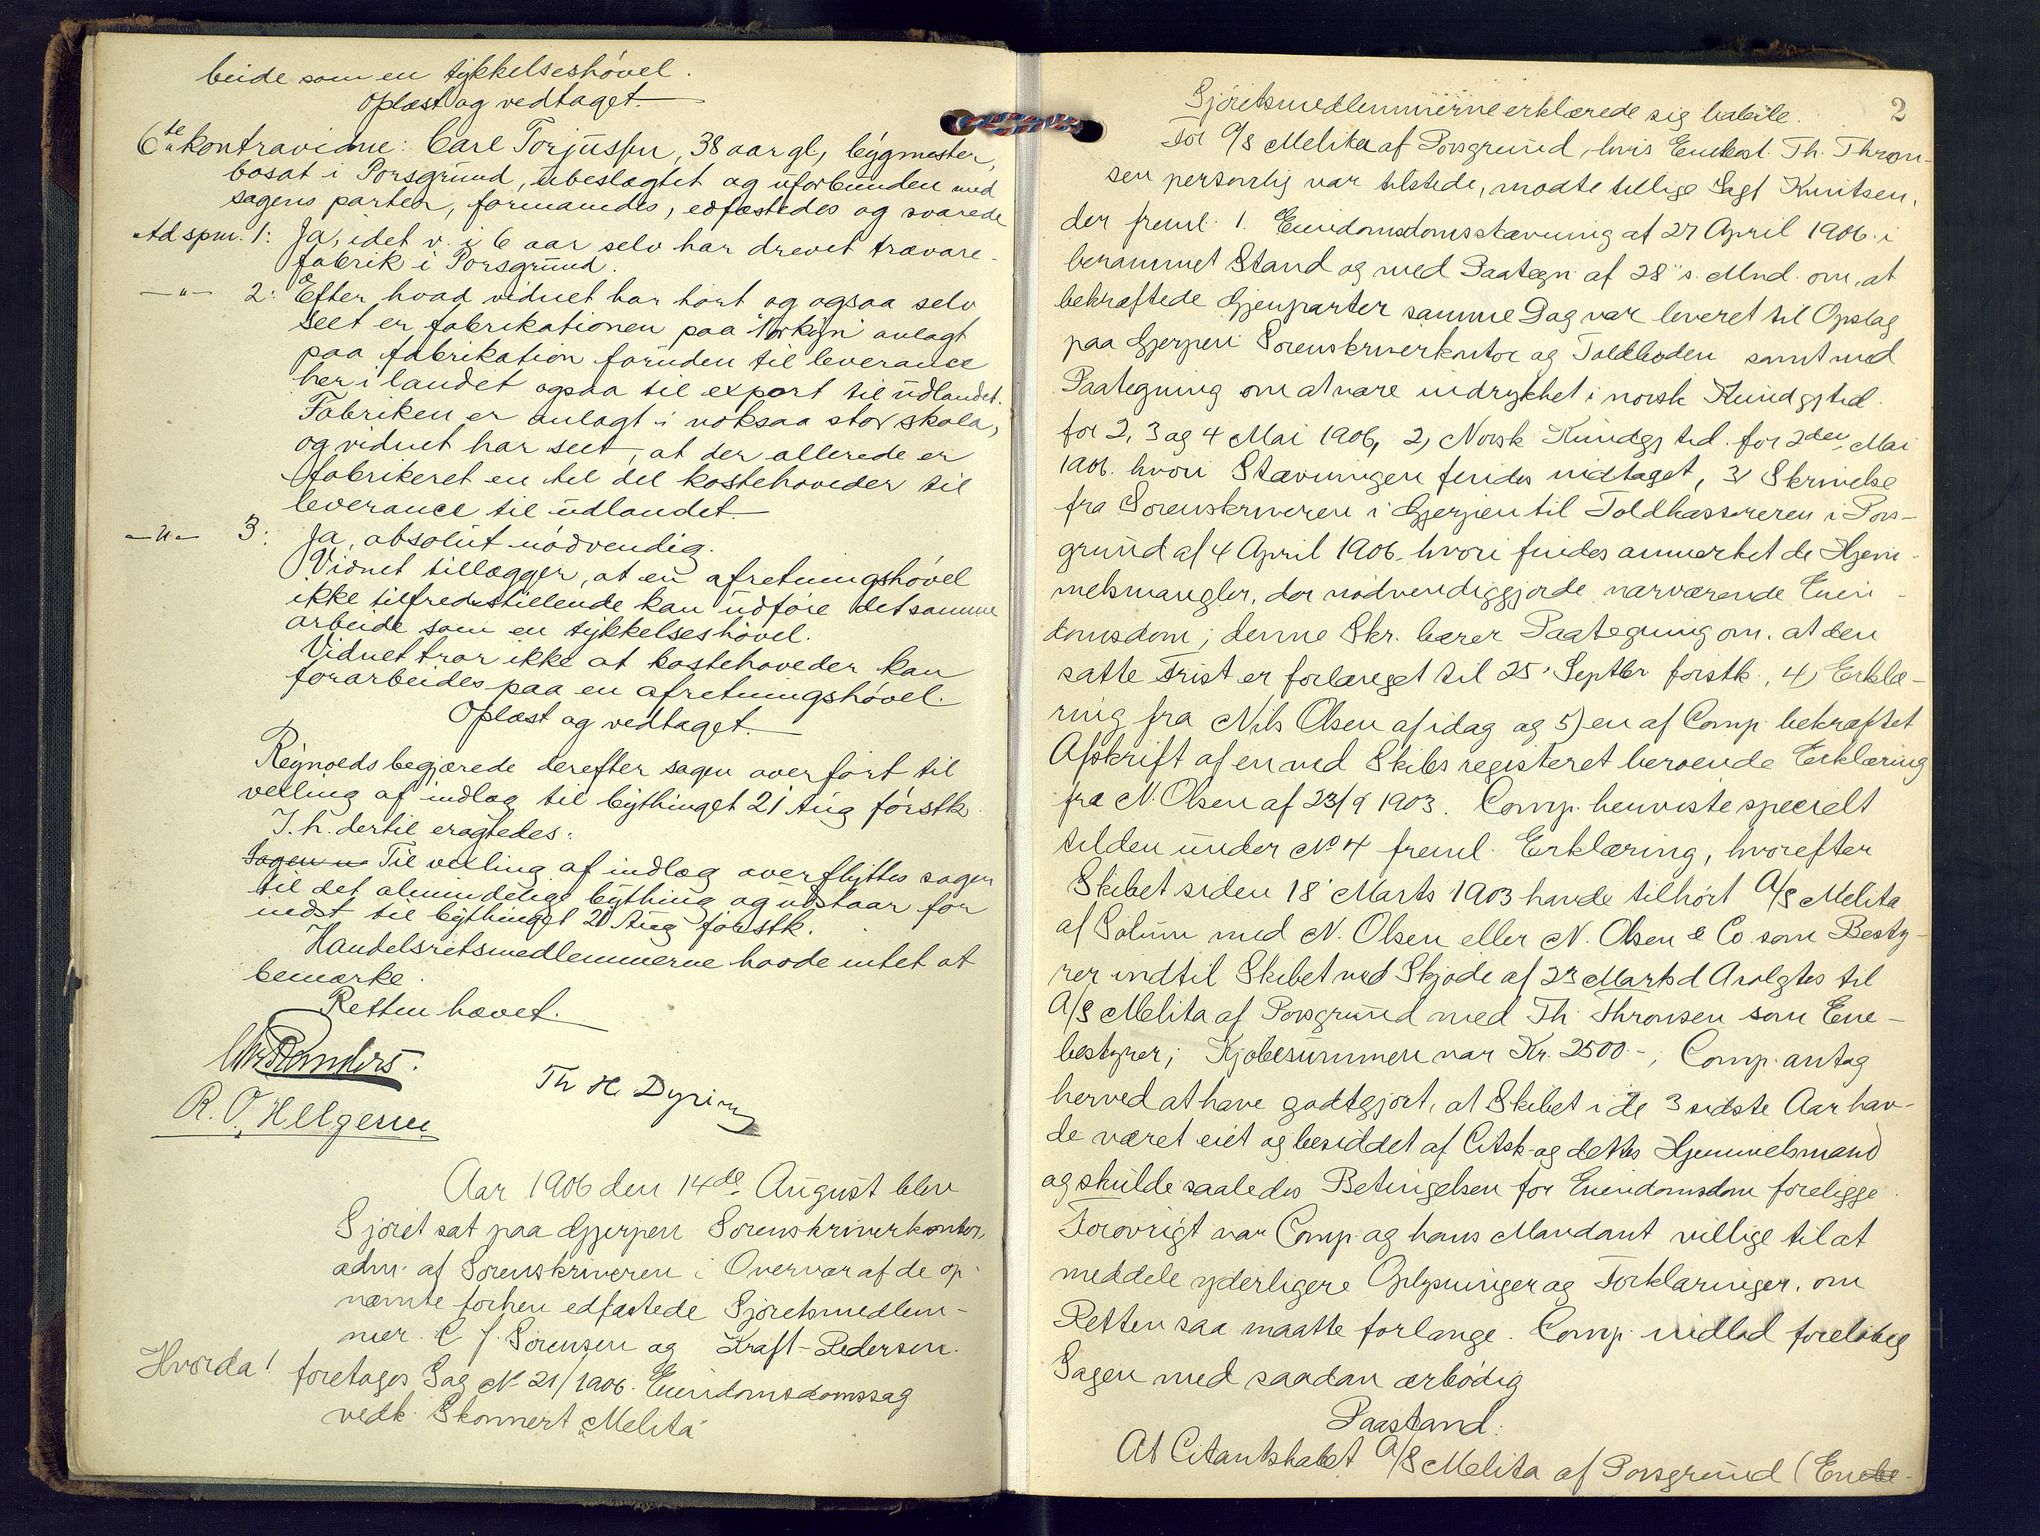 beide som en tykkelseshøvel.
Oplæst og vedtaget.
6te kontravidne: Carl Torjussen, 38 aar gl, bygmester,
bosat i Porsgrund, ubeslægtet og uforbunden med
sagens parter, formanedes, edfæstedes og svarede
Ad spm. 1: Ja, idet v. i 6 aar selv har drevet trævare-
fabrik i Porsgrund.
—"— 2: Efter hvad vidnet har hørt og ogsaa selv
seet er fabrikationen paa anlagt
paa fabrikation foruden til leverance
her i landet ogsaa til export til udlandet.
Fabriken er anlagt i noksaa stor skala,
og vidnet har seet, at der allerede er
fabrikeret en hel del kostehoveder til
leverance til udlandet.
—"— 3: Ja, absolut nødvendig.
Vidnet tillægger, at en afretningshøvel
ikke tilfredsstillende kan udføre det samme
arbeide som en tykkelseshøvel.
Vidnet tror ikke at kostehoveder kan
forarbeides paa en afretningshøvel.
Oplæst og vedtaget.
Reynolds begjærede derefter sagen overført til
vexling af indlæg til bythinget 21 Aug førstk.
I. h. dertil eragtedes:
Sagen u Til vexling af indlæg overflyttes sagen
til det almindelige bything og udstaar for
indst til bythinget 21 Aug førstk.
Handelsretsmedlemmerne havde intet at
bemærke.
Retten hævet.
Th H Dyring
R. O. Helgesen
Aar 1906 den 14de August blev
Sjøret sat paa Gjerpen Sorenskriverkontor,
adm. af Sorenskriveren i Overvær af de op-
nævnte forhen edfæstede Sjøretsmedlem-
mer C J. Sørensen og Kraft-Pedersen.
Hvorda! foretoges Sag No 21/1906. Eiendomsdomssag
vedk. Skonnert "Melita"
2
Sjøretsmedlemmerne erklærede sig habile.
For A/S Melita af Porsgrund, hvis Enebest. Th. Thron-
sen personlig var tilstede, mødte tillige Sagf Knutsen,
der freml. 1. Eiendomsdomsstævning af 27 April 1906 i
berammet Stand og med Paategn af 28 s. Mnd. om, at
bekræftede Gjenparter samme Dag var leveret til Opslag
paa Gjerpen Sorenskriverkontor og Toldboden samt med
Paategning om at være indrykket i norsk Kundgj.tid.
for 2, 3 og 4 Mai 1906, 2, Norsk Kundgj tid. for 2den Mai
1906. hvori Stævningen findes indtaget, 3, Skrivelse
fra Sorenskriveren i Gjerpen til Toldkassereren i Pors-
grund af 4 April 1906. hvori findes anmerket de Hjem-
melsmangler, der nødvendiggjorde nærværende Eien-
domsdom; denne Skr. bærer Paategning om. at den
satte Frist er forlænget til 25' Septbr. førstk., 4, Erklæ-
ring fra Nils Olsen af idag og 5) en af Comp. bekræftet
Afskrift af en ved Skibsregisteret beroende Erklæring
fra N. Olsen af 23/9 1903. Comp. henviste specielt
til den under No 4 freml. Erklæring, hvorefter
Skibet siden 18' Marts 1903 havde tilhørt A/S Melita
af Solum med N. Olsen eller N. Olsen & Co. som Besty-
rer indtil Skibet ved Skjøde af 23 Marts d A solgtes til
A/S Melita af Porsgrund med Th. Thronsen som Ene-
bestyrer; Kjøbesummen var Kr. 2500.-; Comp. antog
herved at have godtgjort, at Skibet i de 3 sidste Aar hav-
de været eiet og besiddet af Citsk. og dettes Hjemmelsmand
og skulde saaledes Betingelsen for Eiendomsdom foreligge.
Forøvrigt var Comp og hans Mandant villige til at
meddele yderligere Oplysninger og Forklaringer, om
Retten saa maatte forlange. Comp. indlod foreløbig
Sagen med saadan ærbødig
Paastand:
At Citantskabet A/S Melita af Porsgrund (Enebe-